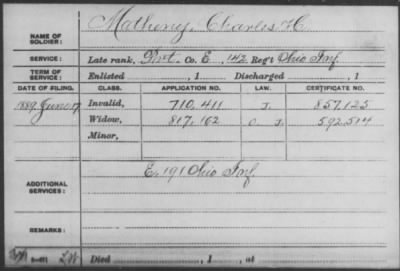 Matheny, Charles H.
NAME OF SOLDIER:
SERVICE: Late rank, Pvt. Co. E, 142 Reg't Ohio Inf.
TERM OF SERVICE: Enlisted , 1 Discharged , 1
DATE OF FILING. CLASS. APPLICATION NO. LAW. CERTIFICATE NO.
1889, June 17 Invalid, 710,411 J. 857,125
Widow, 817,162 O. J. 592,514
Minor,
E, 191 Ohio Inf.
ADDITIONAL SERVICES:
REMARKS:
Died , 1 , at